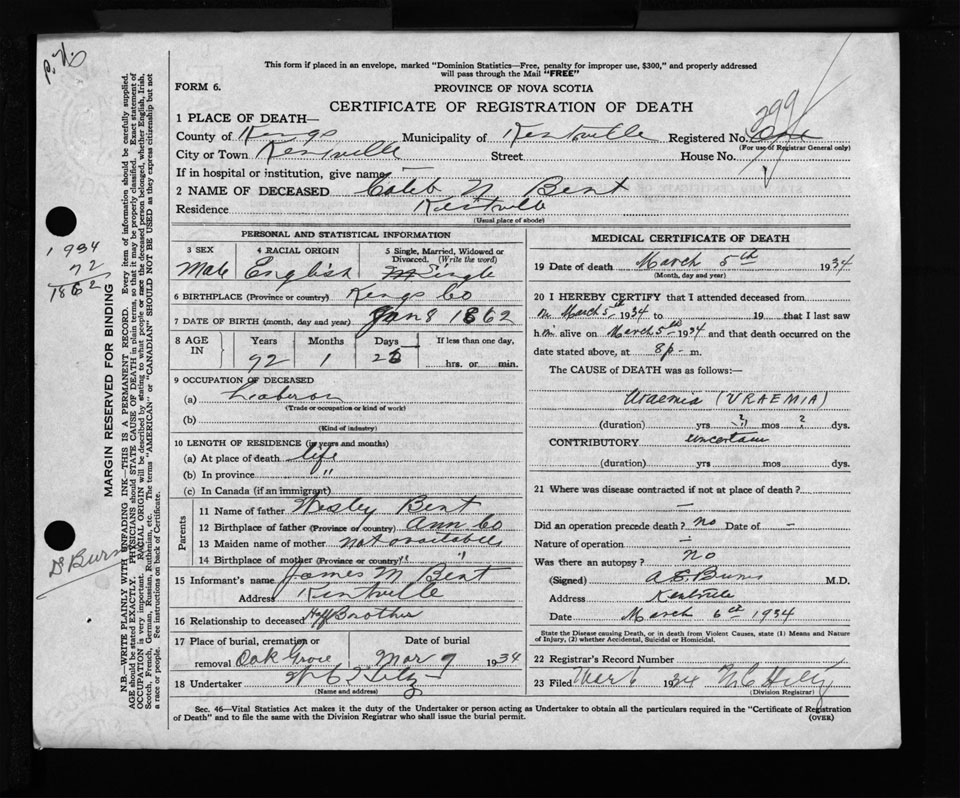 This form if placed in an envelope, marked "Dominion Statistics—Free, penalty for improper use, $300," and properly addressed
will pass through the Mail "FREE"
FORM 6.
PROVINCE OF NOVA SCOTIA
CERTIFICATE OF REGISTRATION OF DEATH
1 PLACE OF DEATH—
County of Kings Municipality of Kentville Registered No.
799
(For use of Registrar General only)
City or Town Kentville Street House No.
If in hospital or institution, give name —
2 NAME OF DECEASED Caleb N Bent
Residence Kentville
(Usual place of abode)
PERSONAL AND STATISTICAL INFORMATION
3 SEX 4 RACIAL ORIGIN 5 Single, Married, Widowed or
Divorced. (Write the word)
Male English Single
6 BIRTHPLACE (Province or country) Kings Co
7 DATE OF BIRTH (month, day and year) Jan 8 1862
8 AGE IN Years Months Days If less than one day,
1 hrs. or min.
9 OCCUPATION OF DECEASED
(a) Laberor
(Trade or occupation or kind of work)
(b)
(Kind of industry)
10 LENGTH OF RESIDENCE (in years and months)
(a) At place of death life
(b) In province "
(c) In Canada (if an immigrant)
Parents
11 Name of father Wesley Bent
12 Birthplace of father (Province or country) Ann Co
13 Maiden name of mother not available
14 Birthplace of mother (Province or country) " "
15 Informant's name James M Bent
Address Kentville
16 Relationship to deceased Half Brother
17 Place of burial, cremation or Date of burial
removal Oak Grove Mar 9 1934
18 Undertaker
(Name and address)
MEDICAL CERTIFICATE OF DEATH
19 Date of death March 5th 1934
(Month, day and year)
20 I HEREBY CERTIFY that I attended deceased from
March 5th 1934 to 19 that I last saw
him alive on March 5th 1934 and that death occurred on the
date stated above, at 8 p - m.
The CAUSE of DEATH was as follows:—
Uraemia (URAEMIA)
(duration) yrs ? mos ? dys.
CONTRIBUTORY uncertain
(duration) yrs mos dys.
21 Where was disease contracted if not at place of death?
—
Did an operation precede death? no Date of —
Nature of operation —
Was there an autopsy? no
(Signed) A E Burns M.D.
Address Kentville
Date March 6th 1934
State the Disease causing Death, or in death from Violent Causes, state (1) Means and Nature
of Injury, (2) whether Accidental, Suicidal or Homicidal.
22 Registrar's Record Number
23 Filed Mar 6 1934
(Division Registrar)
Sec. 46—Vital Statistics Act makes it the duty of the Undertaker or person acting as Undertaker to obtain all the particulars required in the "Certificate of Registration
of Death" and to file the same with the Division Registrar who shall issue the burial permit.
(OVER)
1934
72
1862
Dr Burns
MARGIN RESERVED FOR BINDING
N.B.—WRITE PLAINLY WITH UNFADING INK—THIS IS A PERMANENT RECORD. Every item of information should be carefully supplied.
AGE should be stated EXACTLY. PHYSICIANS should STATE CAUSE OF DEATH in plain terms, so that it may be properly classified. Exact statement of
OCCUPATION is very important. RACIAL ORIGIN will be described by stating to what people or race the deceased person belonged, whether English, Irish,
Scotch, French, German, Russian, Ruthenian, etc. The terms "AMERICAN" or "CANADIAN" SHOULD NOT BE USED as they express citizenship but not
a race or people. See instructions on back of Certificate.